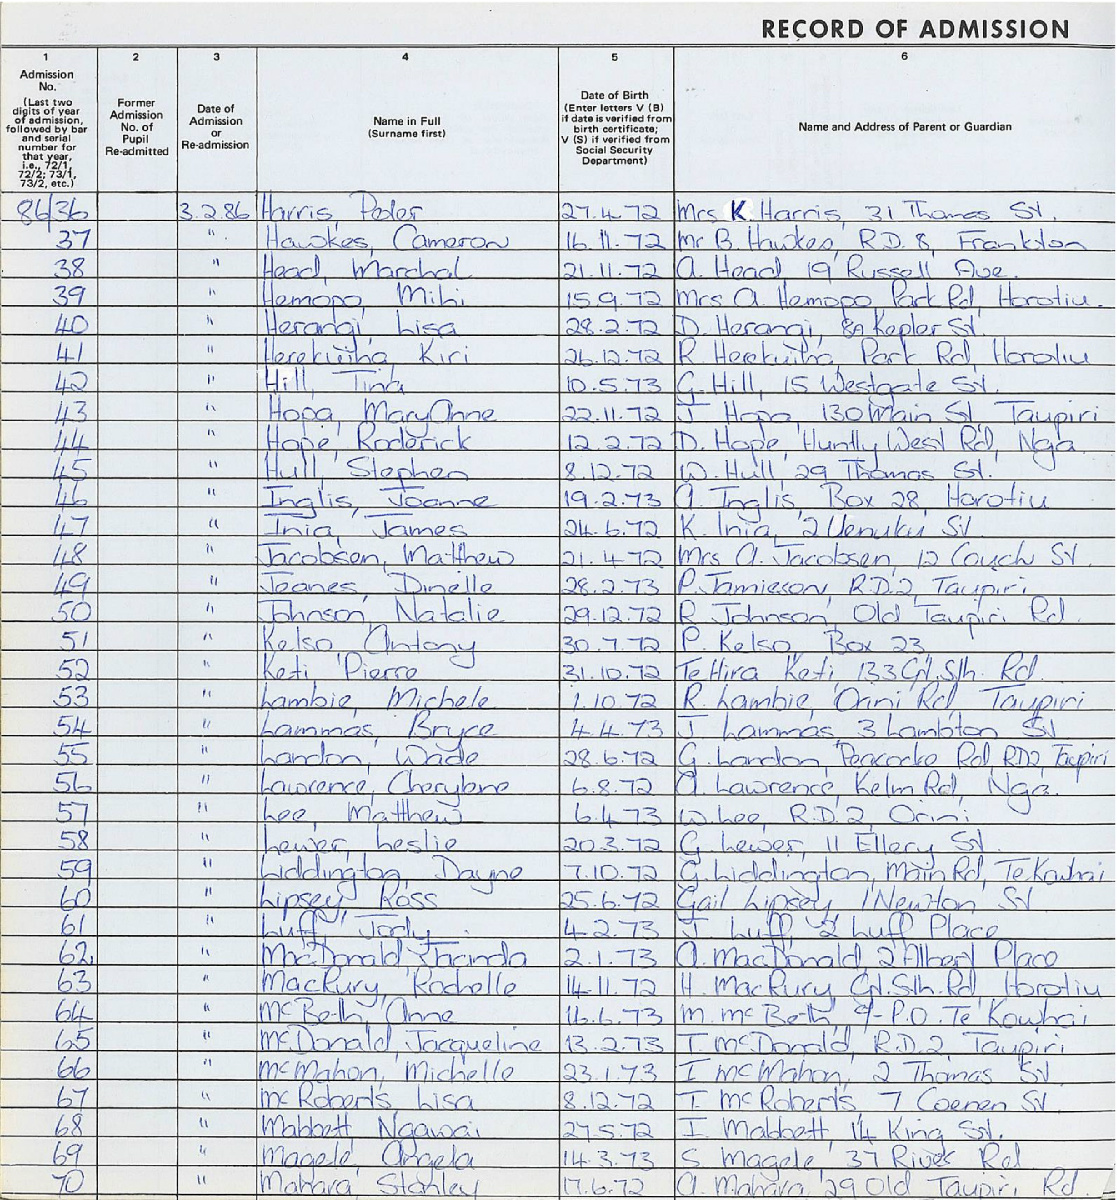 RECORD OF ADMISSION
1 2 3 4 5 6
Admission No. (Last two digits of year of admission, followed by bar and serial number for that year, i.e., 72/1, 72/2; 73/1, 73/2, etc.)
Former Admission No. of Pupil Re-admitted
Date of Admission or Re-admission
Name in Full (Surname first)
Date of Birth (Enter letters V (B) if date is verified from birth certificate; V (S) if verified from Social Security Department)
Name and Address of Parent or Guardian
86/36 3.2.86 Harris, Peter 27.4.72 Mrs K Harris, 31 Thomas St.
37 " Hawkes, Cameron 16.11.72 Mr B. Hawkes, R.D. 8, Frankton
38 " Head, Marchal 21.11.72 A. Head, 19 Russell Ave.
39 " Hemopo, Mihi 15.9.72 Mrs A. Hemopo Park Rd, Horotiu.
40 " Herangi, Lisa 28.2.72 D. Herangi, 8A Kepler St.
41 " Herekuiha, Kiri 26.12.72 R. Herekuiha, Park Rd, Horotiu
42 " Hill, Tina 10.5.73 G. Hill, 15 Westgate St.
43 " Hopa, MaryAnne 22.11.72 J. Hopa, 130 Main St Taupiri
44 " Hope, Roderick 12.2.72 D. Hope, Huntly West Rd, Nga
45 " Hull, Stephen 8.12.72 W. Hull, 29 Thomas St.
46 " Inglis, Joanne 19.2.73 A. Inglis Box 28, Horotiu
47 " Inia, James 24.6.72 K. Inia, 2 Uenuku St
48 " Jacobsen, Matthew 21.4.72 Mrs A. Jacobsen, 12 Couch St.
49 " Joanes, Dinelle 28.2.73 P. Jamieson, R.D.2, Taupiri
50 " Johnson, Natalie 29.12.72 R. Johnson, Old Taupiri Rd.
51 " Kelso, Antony 30.7.72 P. Kelso, Box 23
52 " Keti, Pierre 31.10.72 Te Hira Keti, 133 Gt. Sth. Rd.
53 " Lambie, Michele 1.10.72 R. Lambie, Orini Rd, Taupiri
54 " Lammas, Bryce 4.4.73 J. Lammas, 3 Lambton St
55 " Landon, Wade 28.6.72 G. Landon, Peacocke Rd RD2, Taupiri
56 " Lawrence, Cherylene 6.8.72 A. Lawrence, Kelm Rd, Nga.
57 " Lee, Matthew 6.4.73 W. Lee, R.D.2, Orini
58 " Lewer, Leslie 20.3.72 G. Lewer, 11 Ellery St.
59 " Liddington, Dayne 7.10.72 G. Liddington, Main Rd, Te Kowhai
60 " Lipsey, Ross 25.6.72 Gail Lipsey 1 Newton St
61 " Luff, Jody. 4.2.73 J. Luff, 2 Luff Place
62 " MacDonald Jacinda 2.1.73 A. MacDonald, 2 Albert Place
63 " MacRury, Rochelle 14.11.72 H. MacRury Gt. Sth. Rd Horotiu
64 " McBeth, Anne 16.6.73 M. McBeth, P.O. Te Kowhai
65 " McDonald, Jacqueline 13.2.73 T. McDonald, R.D.2, Taupiri
66 " McMahon, Michelle 23.1.73 I McMahon, 2 Thomas St
67 " McRoberts, Lisa 8.12.72 T. McRoberts, 7 Coenen St
68 " Mabbett, Ngawai 27.5.72 I. Mabbett, 14 King St.
69 " Magele, Angela 14.3.73 S. Magele, 37 River Rd
70 " Mahara, Stanley 17.6.72 A. Mahara, 29 Old Taupiri Rd.